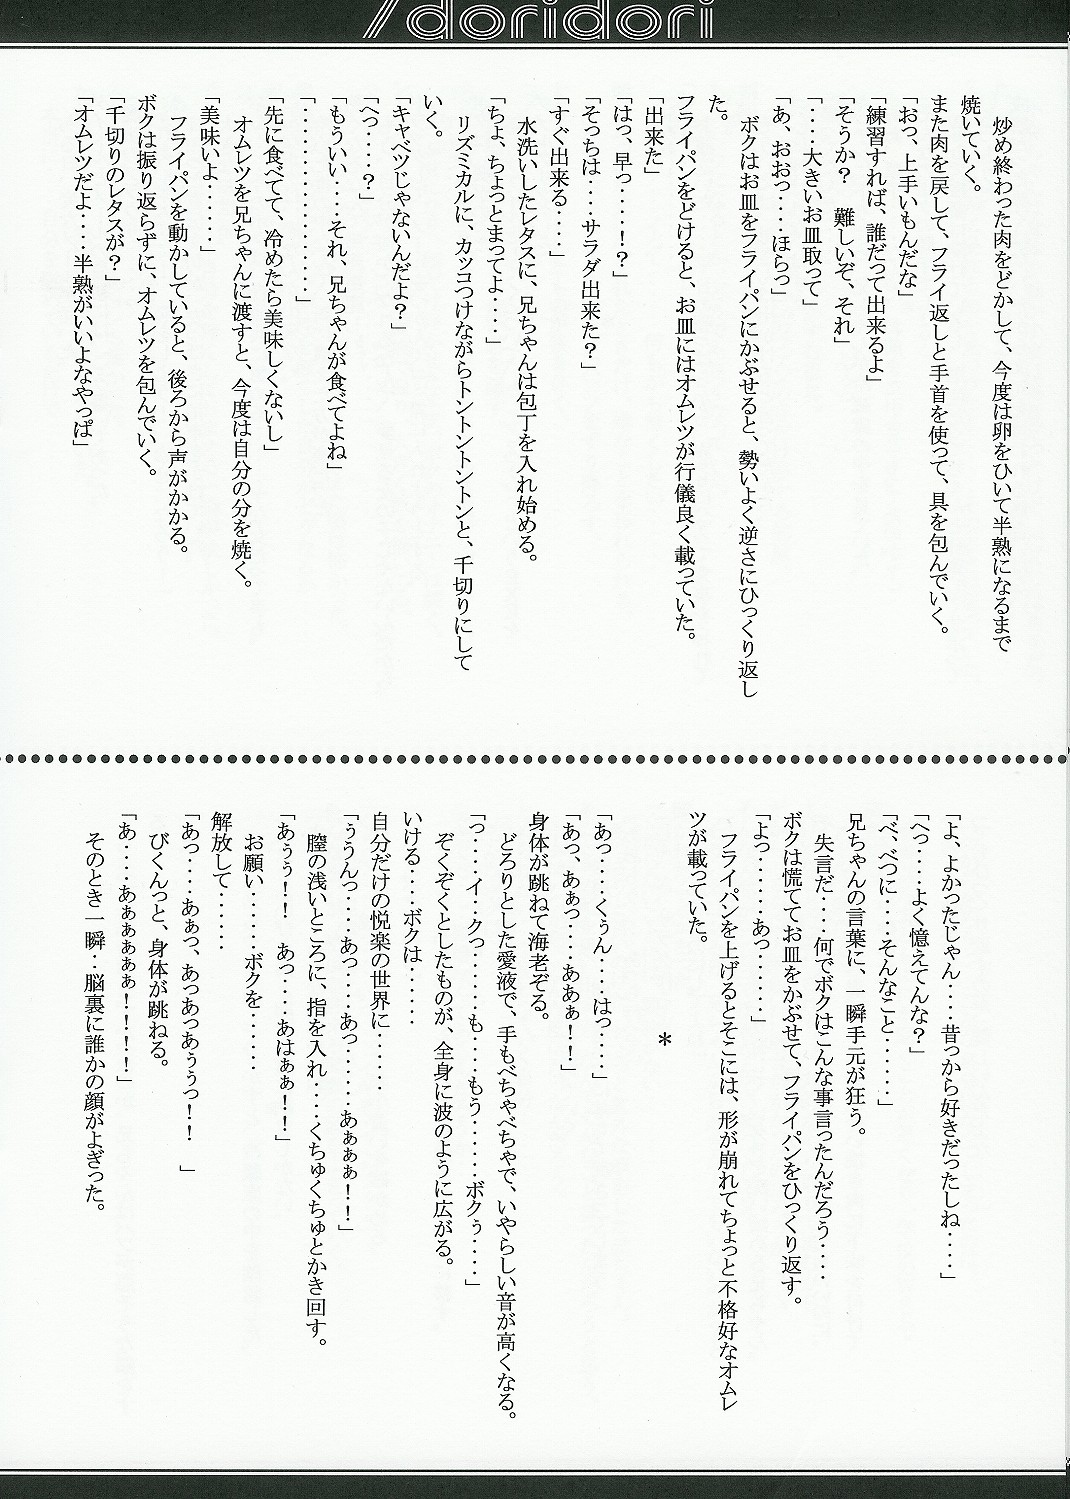 /doridori
炒め終わった肉をどかして、今度は卵をひいて半熟になるまで
焼いていく。
また肉を戻して、フライ返しと手首を使って、具を包んでいく。
「おっ、上手いもんだな」
「練習すれば、誰だって出来るよ」
「そうか？　難しいぞ、それ」
「・・・・大きいお皿取って」
「あ、おおっ・・・・ほらっ」
ボクはお皿をフライパンにかぶせると、勢いよく逆さにひっくり返し
た。
フライパンをどけると、お皿にはオムレツが行儀良く載っていた。
「出来た」
「はっ、早っ・・・・！？」
「そっちは・・・・サラダ出来た？」
「すぐ出来る・・・・」
水洗いしたレタスに、兄ちゃんは包丁を入れ始める。
「ちょ、ちょっとまってよ・・・・」
リズミカルに、カッコつけながらトントントントンと、千切りにして
いく。
「キャベツじゃないんだよ？」
「へっ・・・・？」
「もういい・・・・それ、兄ちゃんが食べてよね」
「・・・・・・・・・・・・・・」
「先に食べてて、冷めたら美味しくないし」
オムレツを兄ちゃんに渡すと、今度は自分の分を焼く。
「美味いよ・・・・・・」
フライパンを動かしていると、後ろから声がかかる。
ボクは振り返らずに、オムレツを包んでいく。
「千切りのレタスが？」
「オムレツだよ・・・・半熟がいいよなやっぱ」
「よ、よかったじゃん・・・・昔っから好きだったしね・・・・」
「へっ・・・・よく憶えてんな？」
「べ、べつに・・・・そんなこと・・・・・・」
兄ちゃんの言葉に、一瞬手元が狂う。
失言だ・・・・何でボクはこんな事言ったんだろう・・・・
ボクは慌ててお皿をかぶせて、フライパンをひっくり返す。
「よっ・・・・・・あっ・・・・・・」
フライパンを上げるとそこには、形が崩れてちょっと不格好なオムレ
ツが載っていた。
＊
「あっ・・・・くぅん・・・・はっ・・・・」
「あっ、あぁっ・・・・ああぁ！！」
身体が跳ねて海老ぞる。
どろりとした愛液で、手もべちゃべちゃで、いやらしい音が高くなる。
「っ・・・・イ・・クっ・・・・・・も・・・・もう・・・・・・ボクぅ・・・・」
ぞくぞくとしたものが、全身に波のように広がる。
いける・・・・ボクは・・・・・・
自分だけの悦楽の世界に・・・・・・
「ぅうんっ・・・・あっ・・・・あっ・・・・・・あぁぁぁ！！」
膣の浅いところに、指を入れ・・・・くちゅくちゅとかき回す。
「あぅぅ！！　あっ・・・・あはぁぁ！！」
お願い・・・・・・ボクを・・・・・・
解放して・・・・・・
「あっ・・・・あぁっ、あっあっあぅぅっ！！　」
びくんっと、身体が跳ねる。
「あ・・・・あぁぁぁぁぁ！！！！」
そのとき一瞬・・脳裏に誰かの顔がよぎった。